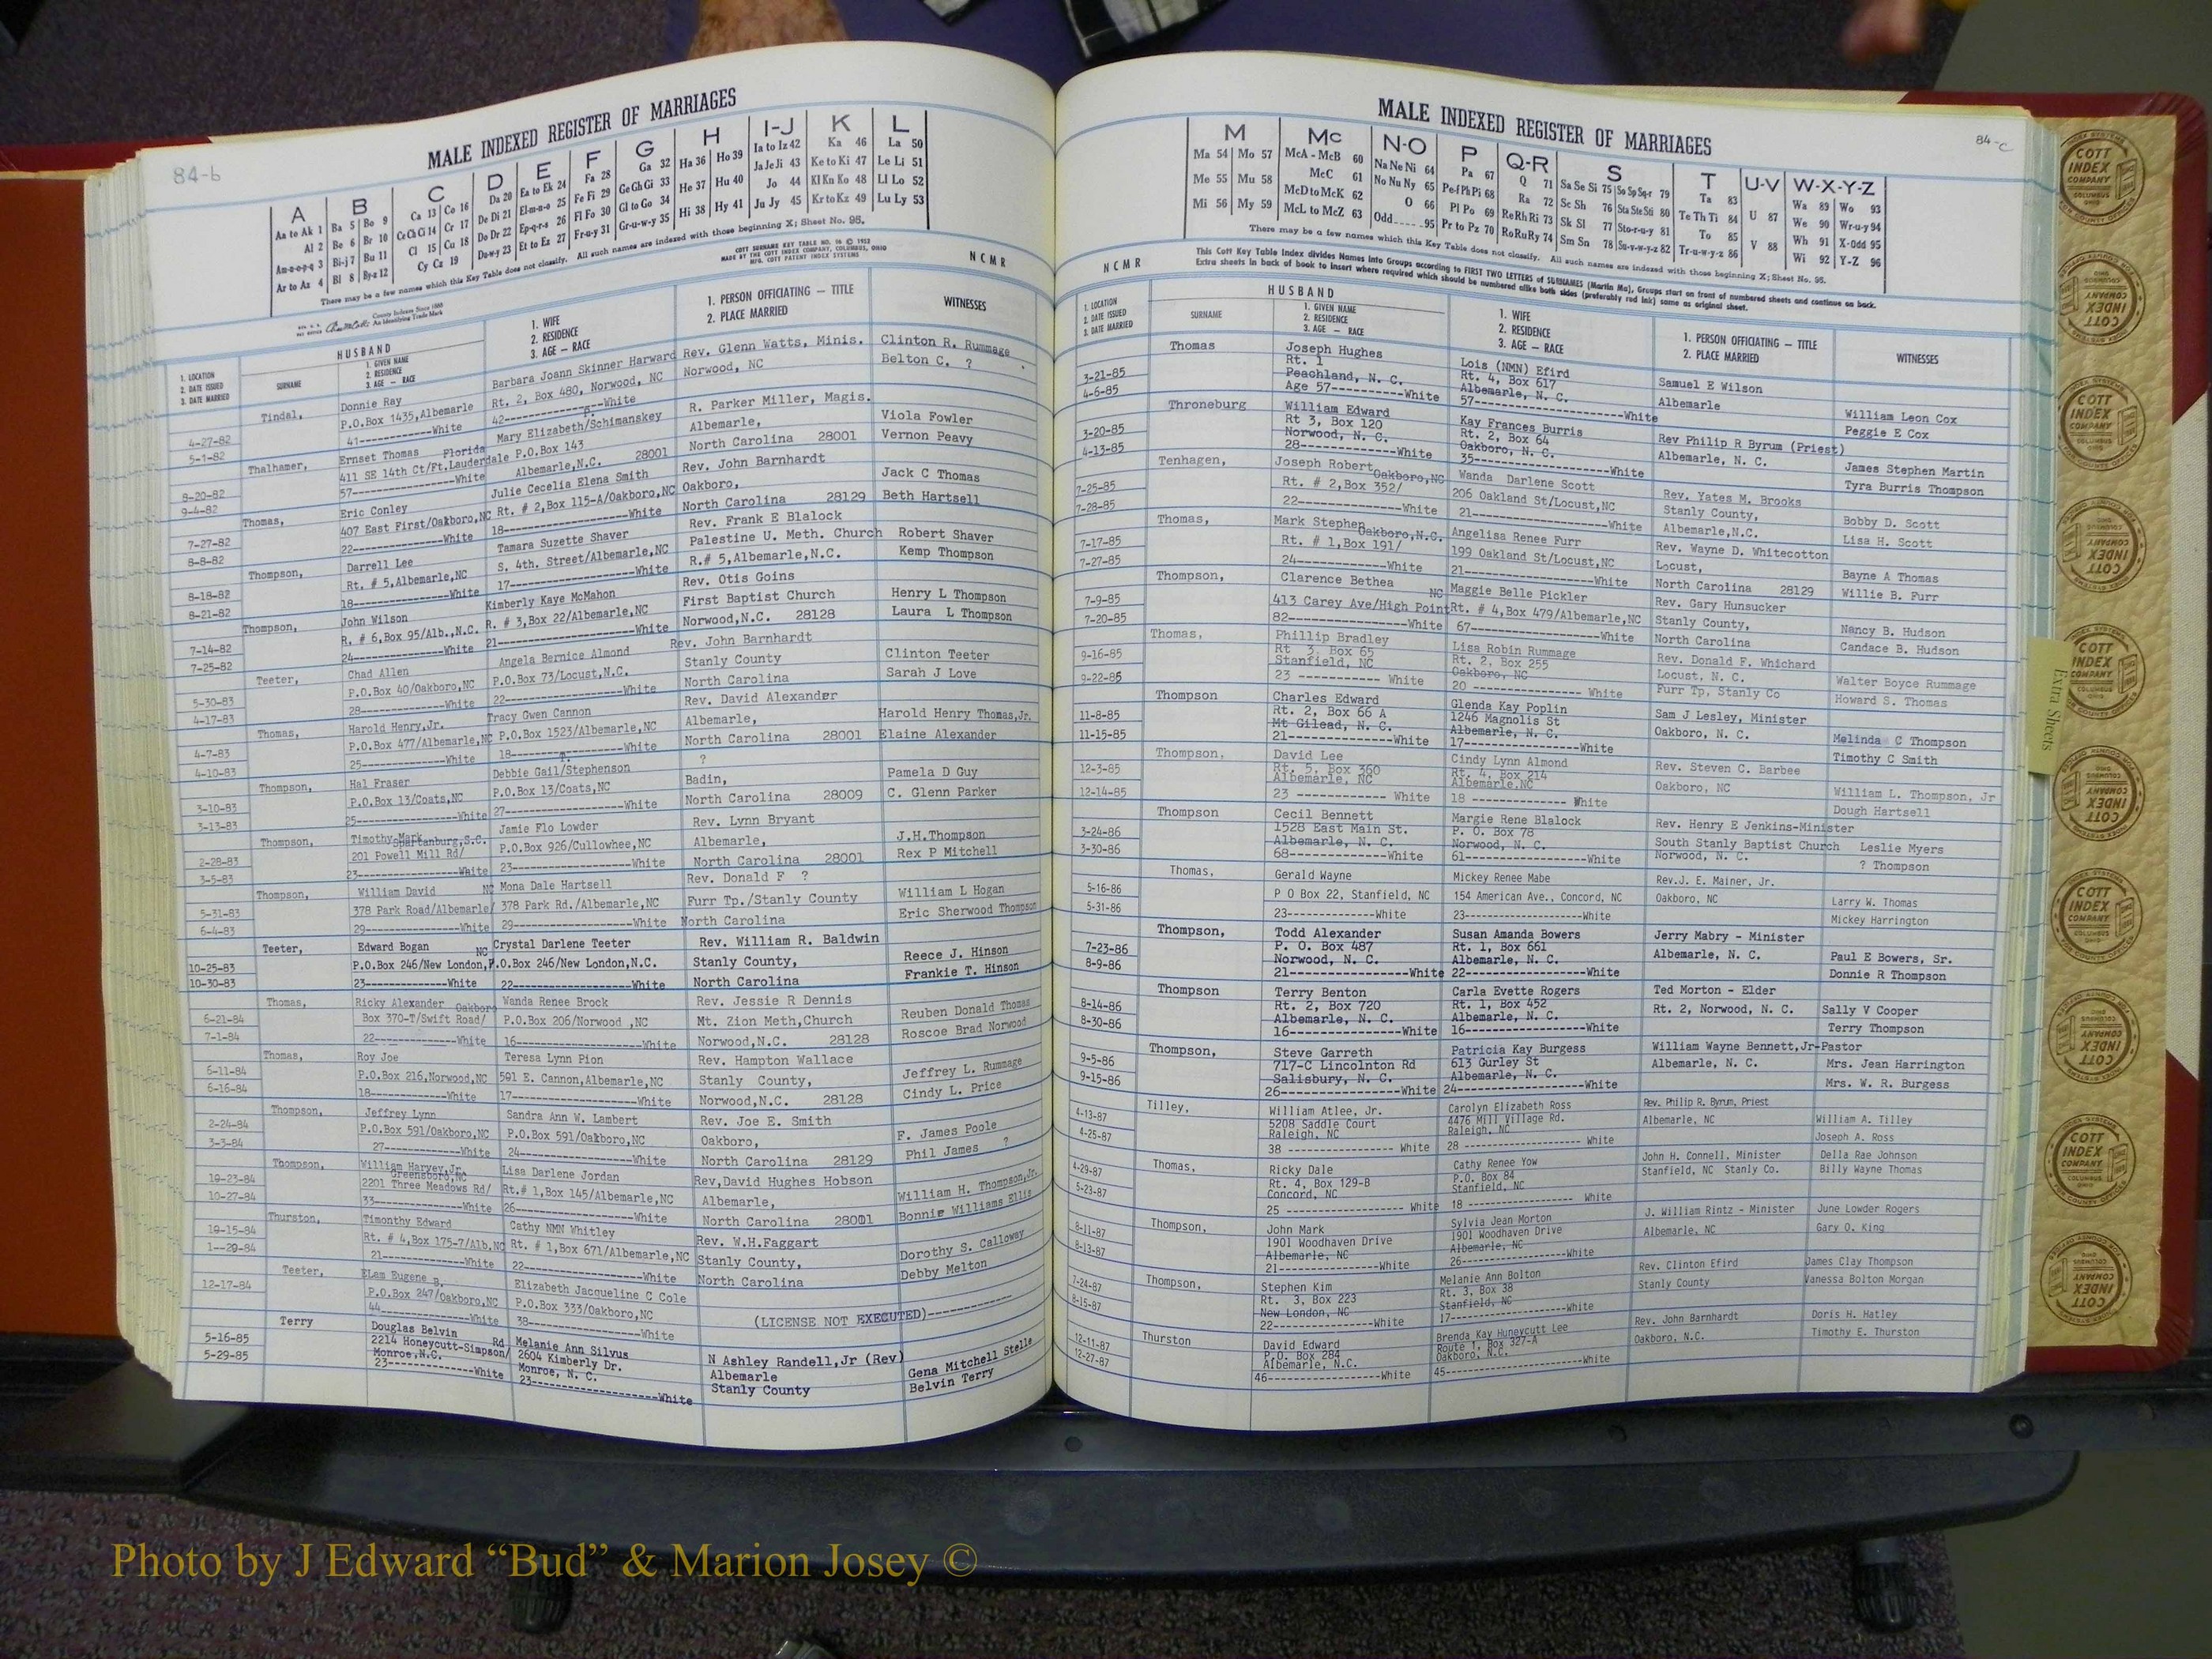 84-b
MALE INDEXED REGISTER OF MARRIAGES
A B C D E F G H I-J K L
Aa to Ak 1 Ba 5 Bo 9 Ca 13 Co 16 Da 20 Ea to Ek 24 Fa 28 Ga 32 Ha 36 Ho 39 Ia to Iz 42 Ka 46 La 50
Al 2 Be 6 Br 10 Ce Ch Ci 14 Cr 17 De Di 21 El-m-n-o 25 Fe Fi 29 Ge Gh Gi 33 He 37 Hu 40 Ja Je Ji 43 Ke to Ki 47 Le Li 51
Am-n-o-p-q 3 Bi-j 7 Bu 11 Cl 15 Cu 18 Do Dr 22 Ep-q-r-s 26 Fl Fo 30 Gl to Go 34 Hi 38 Hy 41 Jo 44 Kl Kn Ko 48 Ll Lo 52
Ar to Az 4 Bl 8 By-z 12 Cy Cz 19 Du-w-y 23 Et to Ez 27 Fr-u-y 31 Gr-u-w-y 35 Ju Jy 45 Kr to Kz 49 Lu Ly 53
There may be a few names which this Key Table does not classify. All such names are indexed with those beginning X; Sheet No. 95.
County Indexes Since 1888
An Identifying Trade Mark
COTT SURNAME KEY TABLE NO. 96 © 1952
MADE BY THE COTT INDEX COMPANY, COLUMBUS, OHIO
MFG. COTT PATENT INDEX SYSTEMS
NCMR
1. LOCATION
2. DATE ISSUED
3. DATE MARRIED
HUSBAND
SURNAME
1. GIVEN NAME
2. RESIDENCE
3. AGE — RACE
1. WIFE
2. RESIDENCE
3. AGE — RACE
1. PERSON OFFICIATING — TITLE
2. PLACE MARRIED
WITNESSES
Tindal, Donnie Ray Barbara Joann Skinner Harward Rev. Glenn Watts, Minis. Clinton R. Rummage
4-27-82 P.O.Box 1435,Albemarle Rt. 2, Box 480, Norwood, NC Norwood, NC Belton C. ?
5-1-82 41------------White 42------------White
Thalhamer, Ernset Thomas Florida Mary Elizabeth/Schimanskey R. Parker Miller, Magis. Viola Fowler
8-20-82 411 SE 14th Ct/Ft.Lauderdale P.O.Box 143 Albemarle, Vernon Peavy
9-4-82 57------------White Albemarle,N.C. 28001 North Carolina 28001
Thomas, Eric Conley Julie Cecelia Elena Smith Rev. John Barnhardt Jack C Thomas
7-27-82 407 East First/Oakboro,NC Rt. # 2,Box 115-A/Oakboro,NC Oakboro, Beth Hartsell
8-8-82 22------------White 18------------White North Carolina 28129
Thompson, Darrell Lee Tamara Suzette Shaver Rev. Frank E Blalock Robert Shaver
8-18-82 Rt. # 5,Albemarle,NC S. 4th. Street/Albemarle,NC Palestine U. Meth. Church Kemp Thompson
8-21-82 18------------White 17------------White R.# 5,Albemarle,N.C.
Thompson, John Wilson Kimberly Kaye McMahon Rev. Otis Goins Henry L Thompson
7-14-82 R. # 6,Box 95/Alb.,N.C. R. # 3,Box 22/Albemarle,NC First Baptist Church Laura L Thompson
7-25-82 24------------White 21------------White Norwood,N.C. 28128
Teeter, Chad Allen Angela Bernice Almond Rev. John Barnhardt Clinton Teeter
5-30-83 P.O.Box 40/Oakboro,NC P.O.Box 73/Locust,N.C. Stanly County Sarah J Love
4-17-83 28------------White 22------------White North Carolina
Thomas, Harold Henry,Jr. Tracy Gwen Cannon Rev. David Alexander Harold Henry Thomas,Jr.
4-7-83 P.O.Box 477/Albemarle,NC P.O.Box 1523/Albemarle,NC Albemarle, Elaine Alexander
4-10-83 25------------White 18------------White North Carolina 28001
Thompson, Hal Fraser Debbie Gail/Stephenson ? Pamela D Guy
3-10-83 P.O.Box 13/Coats,NC P.O.Box 13/Coats,NC Badin, C. Glenn Parker
3-13-83 25------------White 27------------White North Carolina 28009
Thompson, Timothy Mark Spartanburg,S.C. Jamie Flo Lowder Rev. Lynn Bryant J.H.Thompson
2-28-83 201 Powell Mill Rd/ P.O.Box 926/Cullowhee,NC Albemarle, Rex P Mitchell
3-5-83 23------------White 23------------White North Carolina 28001
Thompson, William David NC Mona Dale Hartsell Rev. Donald F ? William L Hogan
5-31-83 378 Park Road/Albemarle/ 378 Park Rd./Albemarle,NC Furr Tp./Stanly County Eric Sherwood Thompson
6-4-83 29------------White 29------------White North Carolina
Teeter, Edward Bogan NC Crystal Darlene Teeter Rev. William R. Baldwin Reece J. Hinson
10-25-83 P.O.Box 246/New London, P.O.Box 246/New London,N.C. Stanly County, Frankie T. Hinson
10-30-83 23------------White 22------------White North Carolina
Thomas, Ricky Alexander Oakboro Wanda Renee Brock Rev. Jessie R Dennis Reuben Donald Thomas
6-21-84 Box 370-T/Swift Road/ P.O.Box 206/Norwood ,NC Mt. Zion Meth,Church Roscoe Brad Norwood
7-1-84 22------------White 16------------White Norwood,N.C. 28128
Thomas, Roy Joe Teresa Lynn Pion Rev. Hampton Wallace Jeffrey L. Rummage
6-11-84 P.O.Box 216,Norwood,NC 501 E. Cannon,Albemarle,NC Stanly County, Cindy L. Price
6-16-84 18------------White 17------------White Norwood,N.C. 28128
Thompson, Jeffrey Lynn Sandra Ann W. Lambert Rev. Joe E. Smith F. James Poole
2-24-84 P.O.Box 591/Oakboro,NC P.O.Box 591/Oakboro,NC Oakboro, Phil James ?
3-3-84 27------------White 24------------White North Carolina 28129
Thompson, William Harvey,Jr. Greensboro,NC Lisa Darlene Jordan Rev,David Hughes Hobson William H. Thompson,Jr.
10-23-84 2201 Three Meadows Rd/ Rt.# 1,Box 145/Albemarle,NC Albemarle, Bonnie Williams Ellis
10-27-84 33------------White 26------------White North Carolina 28001
Thurston, Timonthy Edward Cathy NMN Whitley Rev. W.H.Faggart Dorothy S. Calloway
10-15-84 Rt. # 4,Box 175-7/Alb.NC Rt. # 1,Box 671/Albemarle,NC Stanly County, Debby Melton
1--29-84 21------------White 22------------White North Carolina
Teeter, ELam Eugene B. Elizabeth Jacqueline C Cole
12-17-84 P.O.Box 247/Oakboro,NC P.O.Box 333/Oakboro,NC (LICENSE NOT EXECUTED)------------
44------------White 38------------White
Terry Douglas Belvin Rd Melanie Ann Silvus N Ashley Randell,Jr (Rev) Gena Mitchell Stelle
5-16-85 2214 Honeycutt-Simpson/ 2604 Kimberly Dr. Albemarle Belvin Terry
5-29-85 Monroe,N.C. Monroe, N. C. Stanly County
23------------White 23------------White
84-c
MALE INDEXED REGISTER OF MARRIAGES
M Mc N-O P Q-R S T U-V W-X-Y-Z
Ma 54 Mo 57 McA - McB 60 Na Ne Ni 64 Pa 67 Q 71 Sa Se Si 75 So Sp Sq-r 79 Ta 83 U 87 Wa 89 Wo 93
Me 55 Mu 58 McC 61 No Nu Ny 65 Pe-f Ph Pi 68 Ra 72 Sc Sh 76 Sta Ste Sti 80 Te Th Ti 84 V 88 We 90 Wr-u-y 94
Mi 56 My 59 McD to McK 62 O 66 Pl Po 69 Re Rh Ri 73 Sk Sl 77 Sto-r-u-y 81 To 85 Wh 91 X-odd 95
McL to McZ 63 Odd 95 Pr to Pz 70 Ro Ru Ry 74 Sm Sn 78 Su-v-w-y-z 82 Tr-u-w-y-z 86 Wi 92 Y-Z 96
There may be a few names which this Key Table does not classify. All such names are indexed with those beginning X; Sheet No. 95.
This Cott Key Table Index divides Names into Groups according to FIRST TWO LETTERS of SURNAMES (Martin Ma), Groups start on front of numbered sheets and continue on back.
Extra sheets in back of book to insert where required which should be numbered alike both sides (preferably red ink) same as original sheet.
NCMR
1. LOCATION
2. DATE ISSUED
3. DATE MARRIED
HUSBAND
SURNAME
1. GIVEN NAME
2. RESIDENCE
3. AGE — RACE
1. WIFE
2. RESIDENCE
3. AGE — RACE
1. PERSON OFFICIATING — TITLE
2. PLACE MARRIED
WITNESSES
Thomas Joseph Hughes Lois (NMN) Efird Samuel E Wilson William Leon Cox
3-21-85 Rt. 1 Rt. 4, Box 617 Albemarle Peggie E Cox
4-6-85 Peachland, N. C. Albemarle, N. C.
Age 57------------White 57------------White
Throneburg William Edward Kay Frances Burris Rev Philip R Byrum (Priest) James Stephen Martin
3-20-85 Rt 3, Box 120 Rt. 2, Box 64 Albemarle, N. C. Tyra Burris Thompson
4-13-85 Norwood, N. C. Oakboro, N. C.
28------------White 35------------White
Tenhagen, Joseph Robert Oakboro,NC Wanda Darlene Scott Rev. Yates M. Brooks Bobby D. Scott
7-25-85 Rt. # 2,Box 352/ 206 Oakland St/Locust,NC Stanly County, Lisa H. Scott
7-28-85 22------------White 21------------White Albemarle,N.C.
Thomas, Mark Stephen Oakboro,N.C. Angelisa Renee Furr Rev. Wayne D. Whitecotton Bayne A Thomas
7-17-85 Rt. # 1,Box 191/ 199 Oakland St/Locust,NC Locust, Willie B. Furr
7-27-85 24------------White 21------------White North Carolina 28129
Thompson, Clarence Bethea NC Maggie Belle Pickler Rev. Gary Hunsucker Nancy B. Hudson
7-9-85 413 Carey Ave/High Point Rt. # 4,Box 479/Albemarle,NC Stanly County, Candace B. Hudson
7-20-85 82------------White 67------------White North Carolina
Thomas, Phillip Bradley Lisa Robin Rummage Rev. Donald F. Whichard Walter Boyce Rummage
9-16-85 Rt 3, Box 65 Rt. 2, Box 255 Locust, N. C. Howard S. Thomas
9-22-85 Stanfield, NC Oakboro, NC Furr Tp, Stanly Co
23 ------------ White 20 ------------ White
Thompson Charles Edward Glenda Kay Poplin Sam J Lesley, Minister Melinda C Thompson
11-8-85 Rt. 2, Box 66 A 1246 Magnolis St Oakboro, N. C. Timothy C Smith
11-15-85 Mt Gilead, N. C. Albemarle, N. C.
21------------White 17------------White
Thompson, David Lee Cindy Lynn Almond Rev. Steven C. Barbee William L. Thompson, Jr
12-3-85 Rt. 5, Box 360 Rt. 4, Box 214 Oakboro, NC Dough Hartsell
12-14-85 Albemarle, NC Albemarle,NC
23 ------------ White 18 ------------ White
Thompson Cecil Bennett Margie Rene Blalock Rev. Henry E Jenkins-Minister Leslie Myers
3-24-86 1528 East Main St. P. O. Box 78 South Stanly Baptist Church ? Thompson
3-30-86 Albemarle, N. C. Norwood, N. C. Norwood, N. C.
68------------White 61------------White
Thomas, Gerald Wayne Mickey Renee Mabe Rev.J. E. Mainer, Jr. Larry W. Thomas
5-16-86 P O Box 22, Stanfield, NC 154 American Ave., Concord, NC Oakboro, NC Mickey Harrington
5-31-86 23------------White 23------------White
Thompson, Todd Alexander Susan Amanda Bowers Jerry Mabry - Minister Paul E Bowers, Sr.
7-23-86 P. O. Box 487 Rt. 1, Box 661 Albemarle, N. C. Donnie R Thompson
8-9-86 Norwood, N. C. Albemarle, N. C.
21------------White 22------------White
Thompson Terry Benton Carla Evette Rogers Ted Morton - Elder Sally V Cooper
8-14-86 Rt. 2, Box 720 Rt. 1, Box 452 Rt. 2, Norwood, N. C. Terry Thompson
8-30-86 Albemarle, N. C. Albemarle, N. C.
16------------White 16------------White
Thompson, Steve Garreth Patricia Kay Burgess William Wayne Bennett,Jr-Pastor Mrs. Jean Harrington
9-5-86 717-C Lincolnton Rd 613 Gurley St Albemarle, N. C. Mrs. W. R. Burgess
9-15-86 Salisbury, N. C. Albemarle, N. C.
26------------White 24------------White
Tilley, William Atlee, Jr. Carolyn Elizabeth Ross Rev. Philip R. Byrum, Priest William A. Tilley
4-13-87 5208 Saddle Court 4476 Mill Village Rd. Albemarle, NC Joseph A. Ross
4-25-87 Raleigh, NC Raleigh, NC
38 ------------ White 28 ------------ White
Thomas, Ricky Dale Cathy Renee Yow John H. Connell, Minister Della Rae Johnson
4-29-87 Rt. 4, Box 129-B P.O. Box 84 Stanfield, NC Stanly Co. Billy Wayne Thomas
5-23-87 Concord, NC Stanfield, NC
25 ------------ White 18 ------------ White
Thompson, John Mark Sylvia Jean Morton J. William Rintz - Minister June Lowder Rogers
8-11-87 1901 Woodhaven Drive 1901 Woodhaven Drive Albemarle, NC Gary O. King
8-13-87 Albemarle, NC Albemarle, NC
21------------White 26------------White
Thompson, Stephen Kim Melanie Ann Bolton Rev. Clinton Efird James Clay Thompson
7-24-87 Rt. 3, Box 223 Rt. 3, Box 38 Stanly County Vanessa Bolton Morgan
8-15-87 New London, NC Stanfield, NC
22------------White 17------------White
Thurston David Edward Brenda Kay Huneycutt Lee Rev. John Barnhardt Doris H. Hatley
12-11-87 P.O. Box 284 Route 1, Box 327-A Oakboro, N.C. Timothy E. Thurston
12-27-87 Albemarle, N.C. Oakboro, N.C.
46------------White 45------------White
Extra Sheets
COTT INDEX COMPANY COLUMBUS OHIO
Photo by J Edward “Bud” & Marion Josey ©